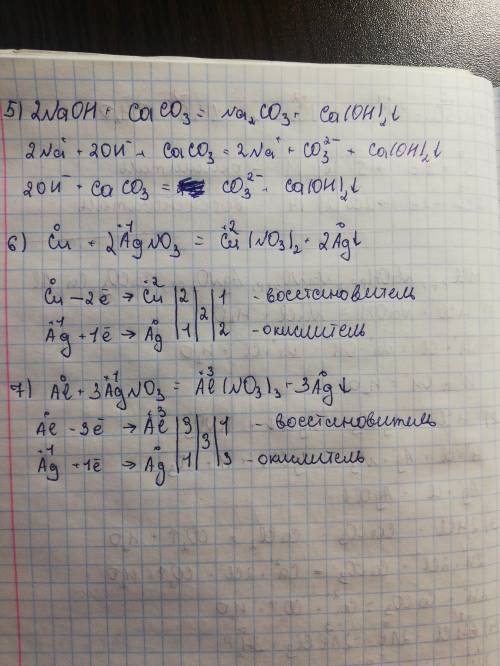 5) 2NaOH + CaCO₃ = Na₂CO₃ + Ca(OH)₂↓
2Na⁺ + 2OH⁻ + CaCO₃ = 2Na⁺ + CO₃²⁻ + Ca(OH)₂↓
2OH⁻ + CaCO₃ = CO₃²⁻ + Ca(OH)₂↓
6) Cu⁰ + 2Ag⁺¹NO₃ = Cu⁺²(NO₃)₂ + 2Ag⁰↓
Cu⁰ - 2ē → Cu⁺² | 2 | 2 | 1 - восстановитель
Ag⁺¹ + 1ē → Ag⁰ | 1 | 2 - окислитель
7) Al⁰ + 3Ag⁺¹NO₃ = Al⁺³(NO₃)₃ + 3Ag⁰↓
Al⁰ - 3ē → Al⁺³ | 3 | 3 | 1 - восстановитель
Ag⁺¹ + 1ē → Ag⁰ | 1 | 3 - окислитель